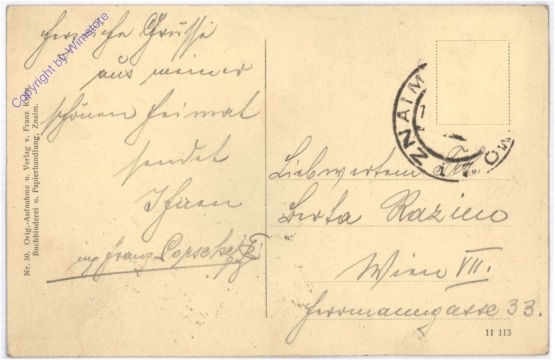 Herzliche Grüsse
aus meiner
schönen Heimat
sendet
Ihnen
Franz Porsche
Copyright by Wimstore
Nr. 50. Orig.-Aufnahme u. Verlag v. Franz
Buchbinderei u. Papierhandlung, Znaim.
ZNAIM
Liebwerten
Berta Razino
Wien VII.
Herrmanngasse 33.
11 113